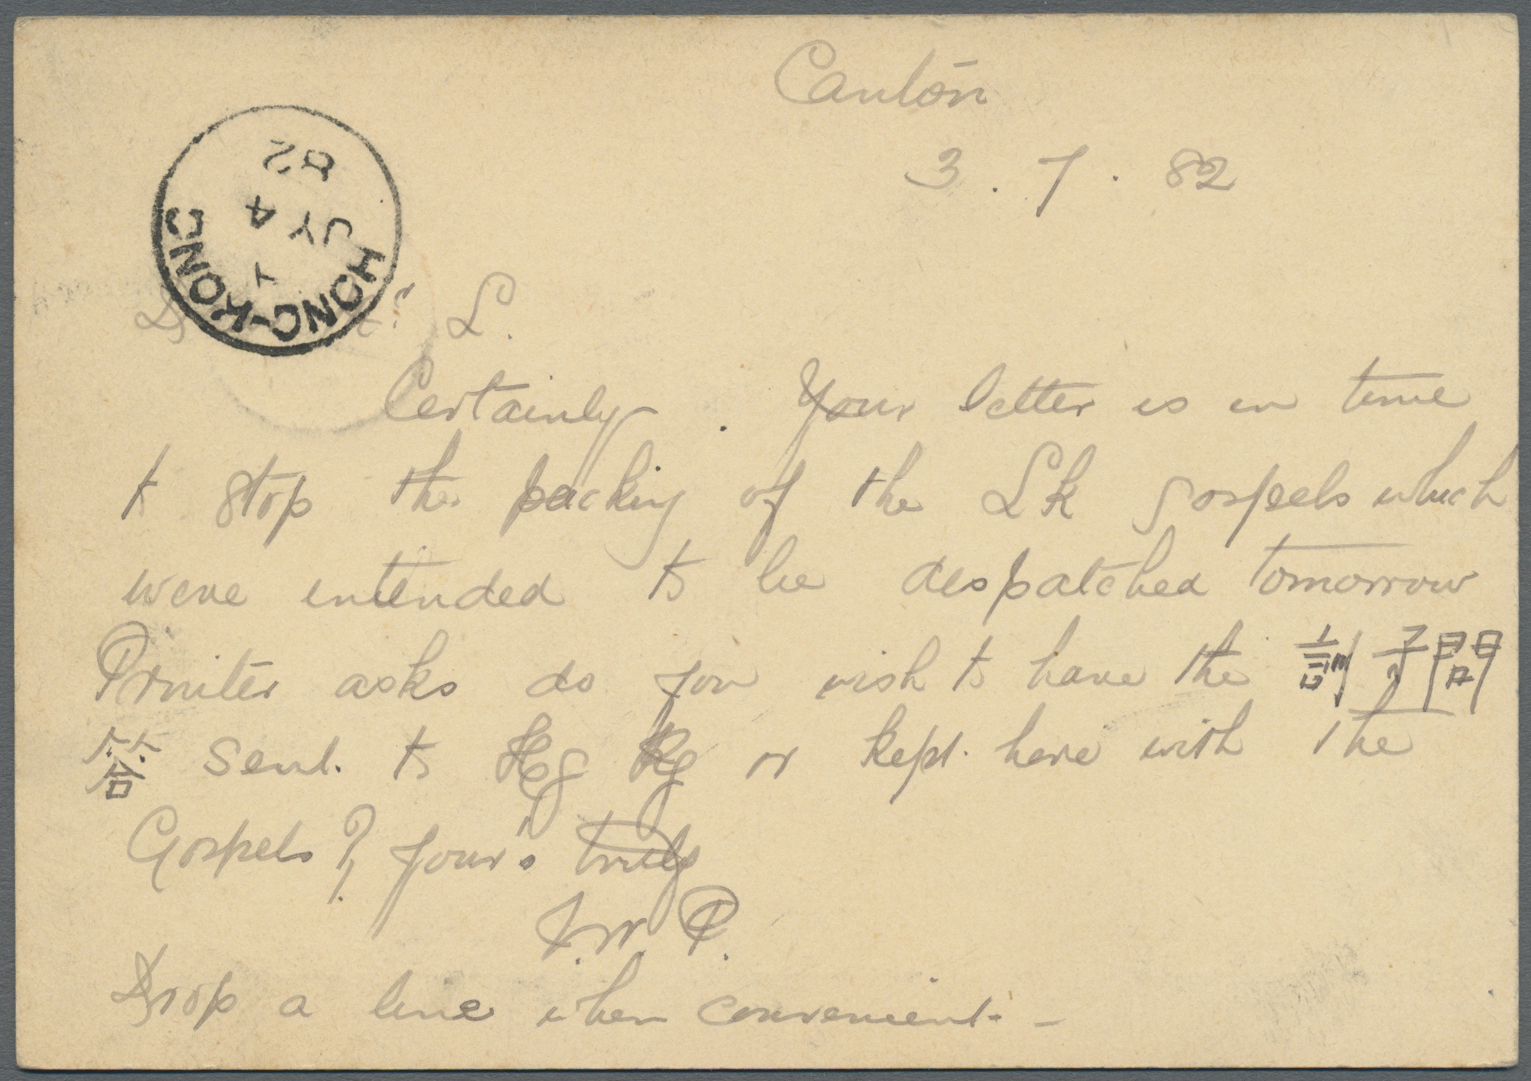 Canton
3 . 7 . 82
HONG-KONG
A
JY 4
82
L.
Certainly. Your letter is in time
to stop the packing of the Lk gospels which
were intended to be despatched tomorrow
Printer asks do you wish to have the 訓子問
答 sent. to Hg Kg or kept here with the
Gospels? your's truly
P.
Drop a line when convenient. -